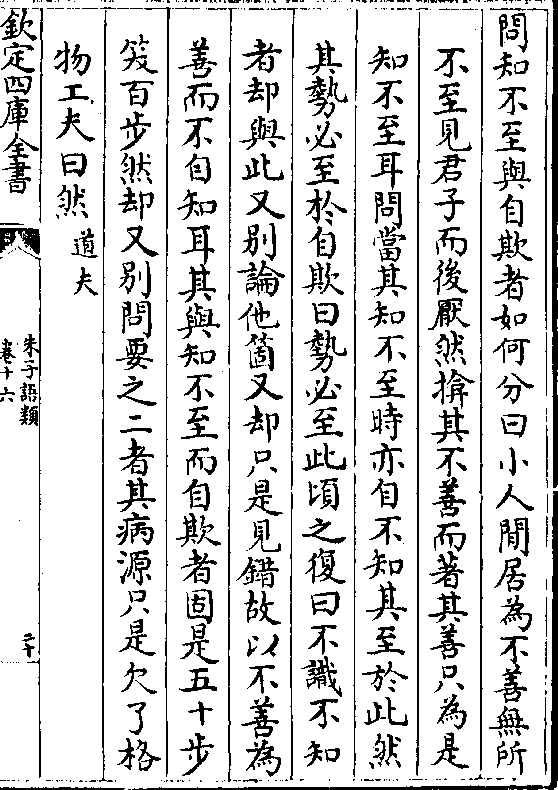 問知不至與自欺者如何分曰小人閒居為不善無所
不至見君子而後厭然揜其不善而著其善只為是
知不至耳問當其知不至時亦自不知其至於此然
其勢必至於自欺曰勢必至此頃之復曰不識不知
者却與此又別論他箇又却只是見錯故以不善為
善而不自知耳其與知不至而自欺者固是五十步
笑百步然却又別問要之二者其病源只是欠了格
物工夫曰然道夫
欽定四庫全書
朱子語類
卷十六
二十